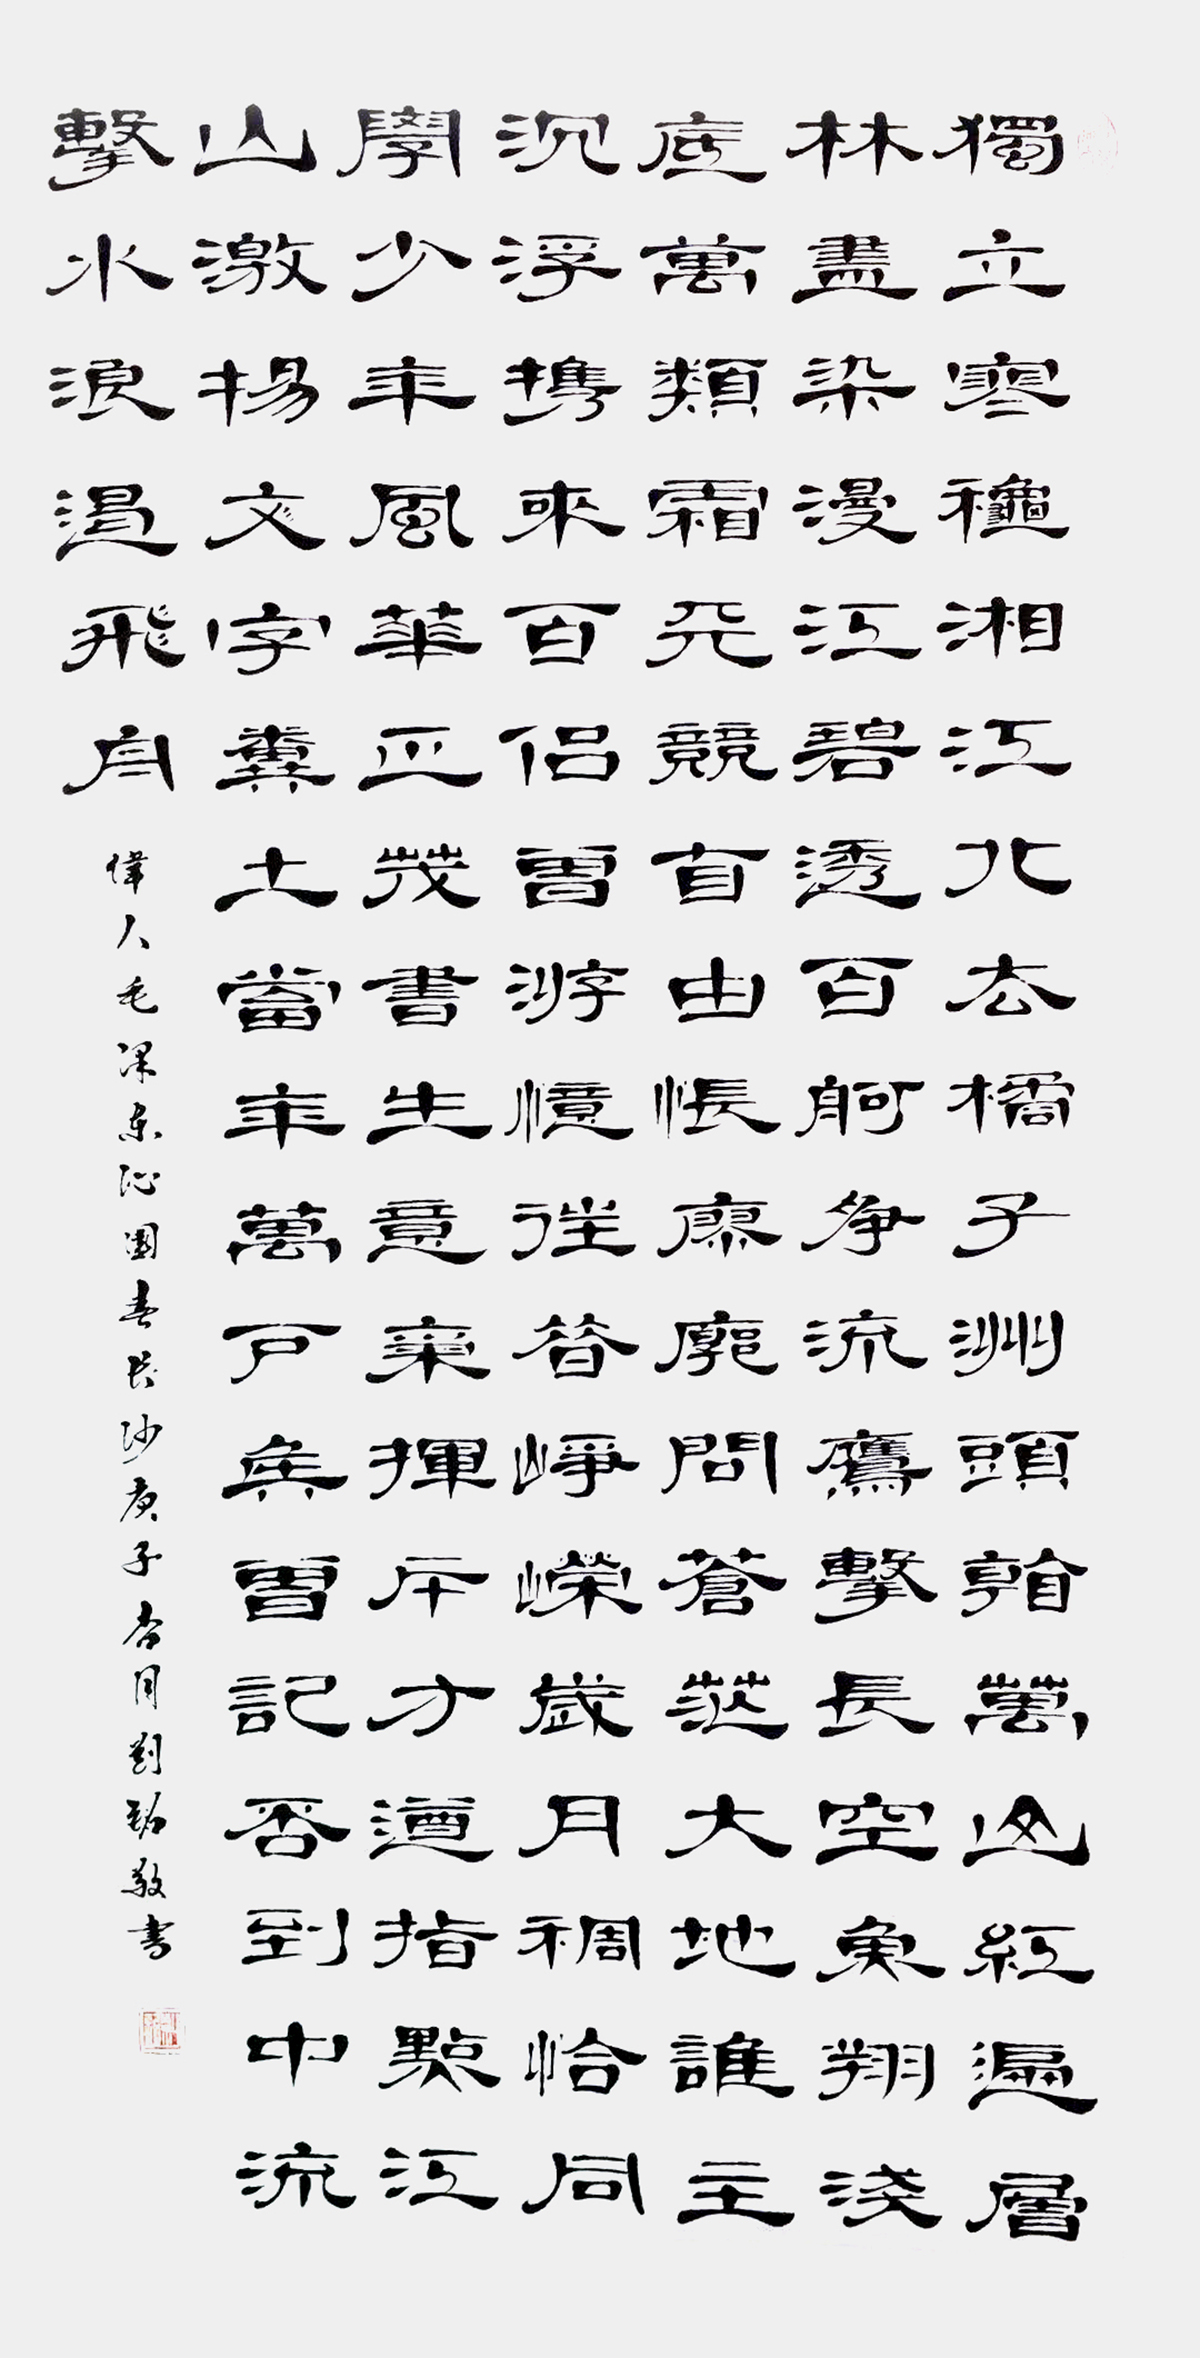 獨立寒穐湘江北去橘子洲頭看萬山紅遍層
林盡染漫江碧透百舸爭流鷹擊長空魚翔淺
底萬類霜天競自由悵寥廓問蒼茫大地誰主
沉浮攜來百侶曾游憶往昔崢嶸歲月稠恰同
學少年風華正茂書生意氣揮斥方遒指點江
山激揚文字糞土當年萬戶矦曾記否到中流
擊水浪遏飛舟
偉人毛澤東沁園春長沙庚子杏月劉敬書